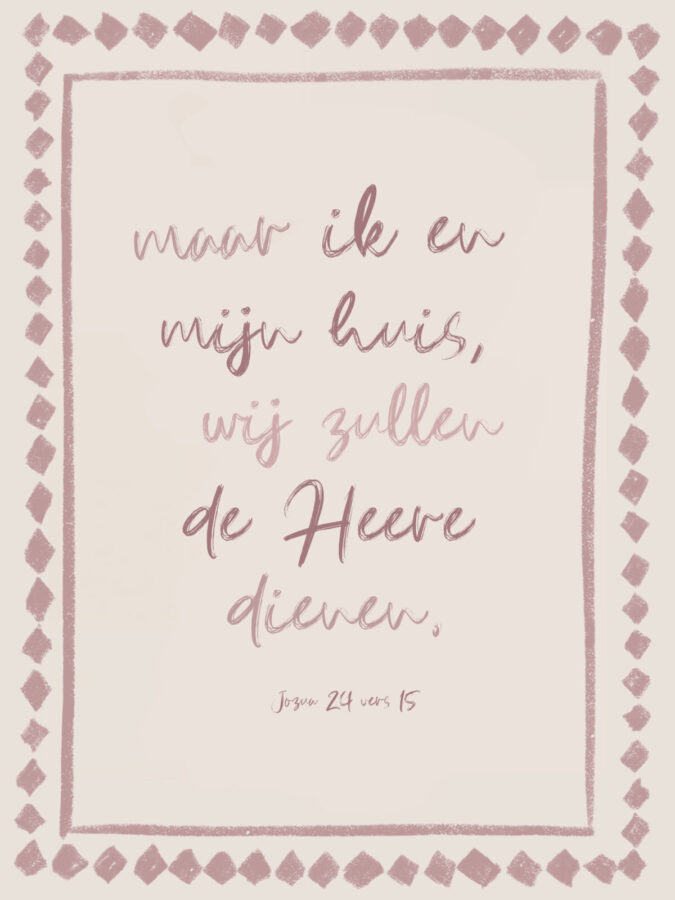 maar ik en
mijn huis,
wij zullen
de Heere
dienen.
Jozua 24 vers 15